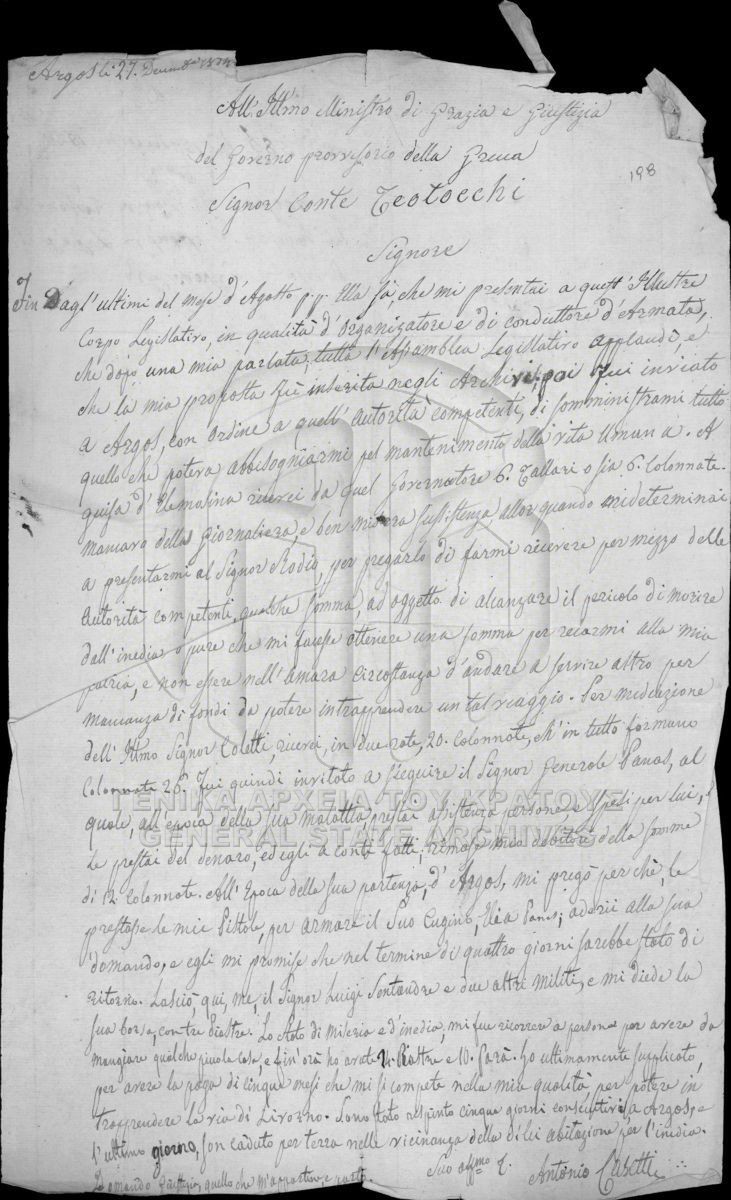 Argos li 27. Decembe
All' Illmo Ministro di Grazia e Giustizia
del Governo provvisorio della Grecia
198
Signor Conte Teotocchi
Signore
Fin Dagl'ultimi del mese d'Agosto p.p. Ella sà, che mi presentai a quest' Illustre
Corpo Legislativo, in qualità d'Organizatore e di conduttore d'Armata,
che dopo una mia parlata, tutta l'Assamblea Legislativo applaudì, e
che la mia proposta fù inserita negli Archivi, poi fui inviato
a Argos, con ordine a quell' Autorità competenti, di somministrami tutto
quello che poteva abbisogniarmi pel mantenimento della vita Umana. A
guisa d'Elamosina ricevei da quel Governatore 6. Tallari o sia 6. Colonnate.
Mancavo della Giornaliera, e ben misera sussistenza allor quando mi determinai
a presentarmi al Signor Rodio, per pregarlo di farmi ricevere per mezzo delle
Autorità competenti, qualche somma, ad oggetto di alcanzare il pericolo di morire
dall'inedia o pure che mi facesse ottenere una somma per recarmi alla mia
patria, e non essere nell'amara circostanza d'andare a servire altro per
mancanza di fondi da potere intrapprendere un tal viaggio. Per mediazione
dell' Illmo Signor Coletti, ricevei, in due rate, 20. Colonnate, ch' in tutto formano
Colonnate 26. Fui quindi invitato a seguire il Signor Generale Panos, al
quale, all'epoca della sua malattia prestai assistenza persone, e spesi per lui,
Le prestai del denaro, ed egli a conti fatti, rimase mio debitore della somme
di 12 Colonnate. All' Epoca della sua partenza, d'Argos, mi pregò per chè, le
prestasse le mie Pistole, per armare il Suo Cugino, Panos; aderii alla sua
domando, e egli mi promise che nel termine di quattro giorni sarebbe stato di
ritorno. Lasciò, qui, me, il Signor Luigi Sentandre e due altri militi, e mi diede la
sua borsa, con tre Piastre. Lo stato di miseria e d'inedia, mi fece ricorrere a persone per avere da
mangiare qualche picola cosa, e fin' orà ho avute Piastre e 10. Parà. Ho ultimamente supplicato,
per avere la paga di cinque mesi che mi si compete nella mia qualità per potere in
trapprendere la via di Livorno. Sono stato respinto cinque giorni consecutivi a Argos, e
l'ultimo giorno, son caduto per terra nelle vicinanza della di lei abitazione per l'inedia.
Domando Giustizia, quello che m'appartiene, e parto.
Suo affmo
Antonio
ΓΕΝΙΚΑ ΑΡΧΕΙΑ ΤΟΥ ΚΡΑΤΟΥΣ
GENERAL STATE ARCHIVES